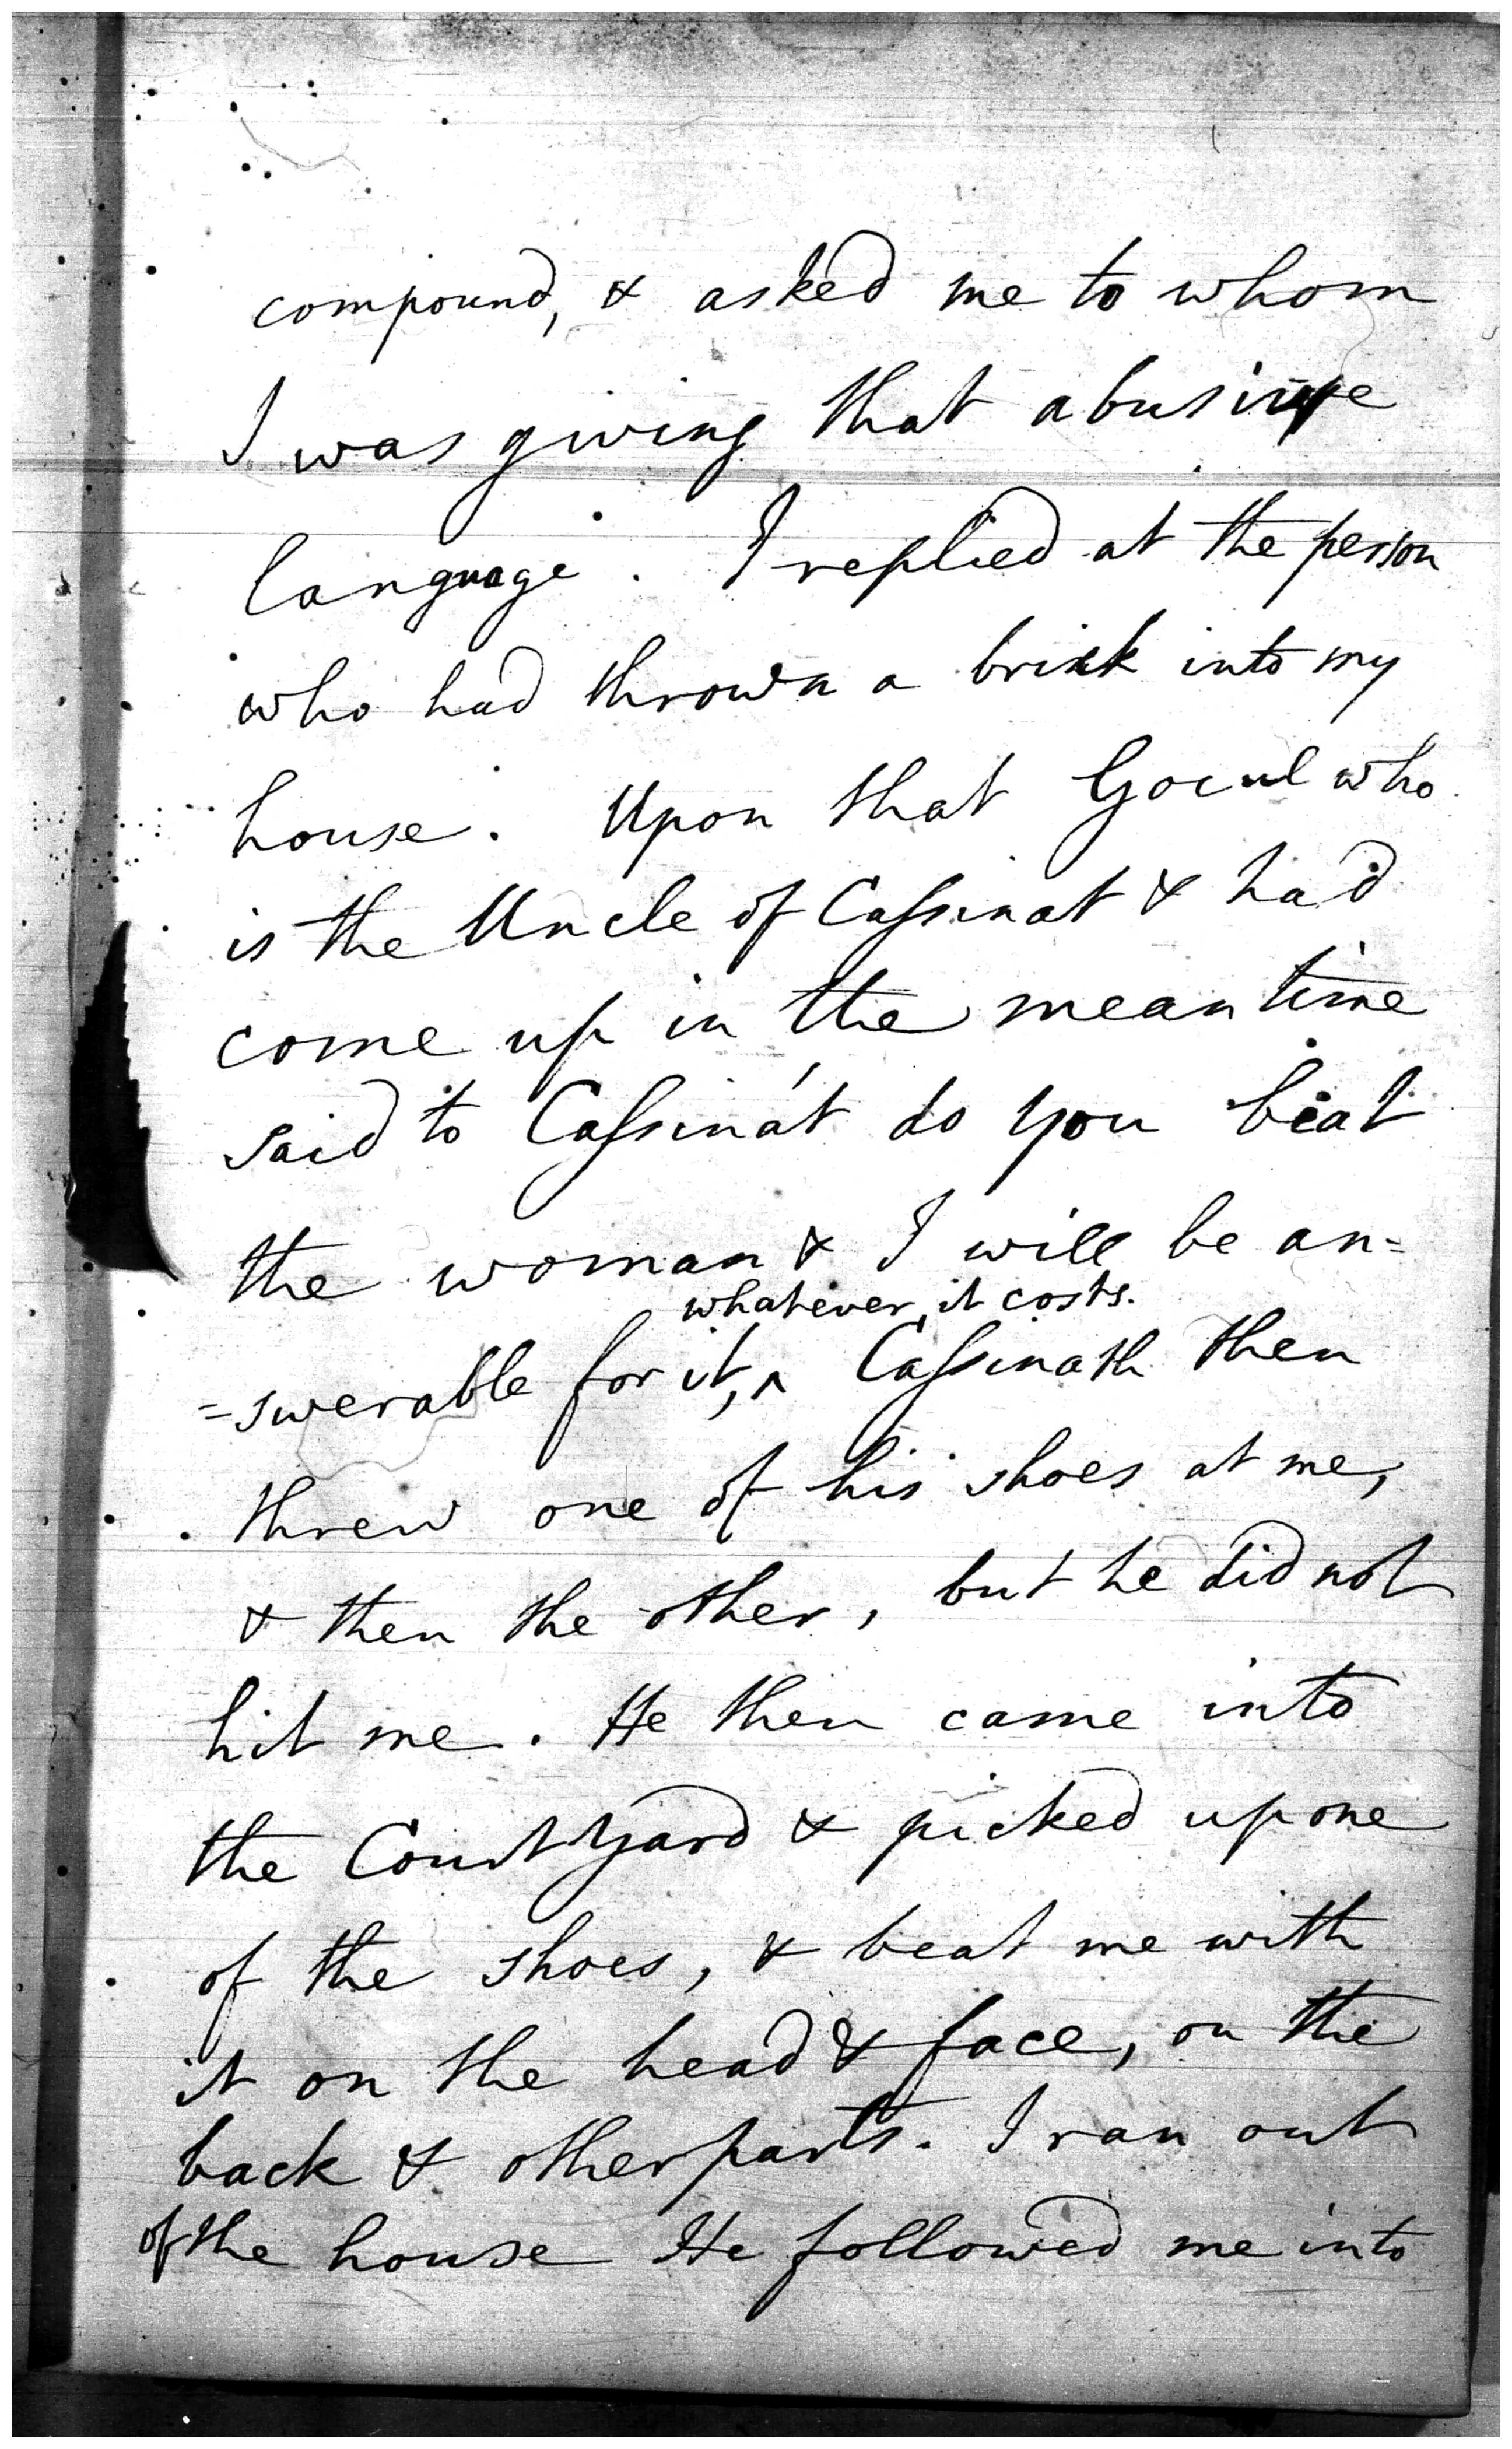 compound, & asked me to whom
I was giving that abusive
language. I replied at the person
who had thrown a brick into my
house. Upon that Gocul who
is the Uncle of Cassinat & had
come up in the mean time
said to Cassinat do you beat
the woman & I will be an=
whatever it costs.
=swerable for it, ^ Cassinath then
threw one of his shoes at me,
& then the other, but he did not
hit me. He then came into
the Court Yard & picked up one
of the shoes, & beat me with
it on the head & face, on the
back & other parts. I ran out
of the house He followed me into